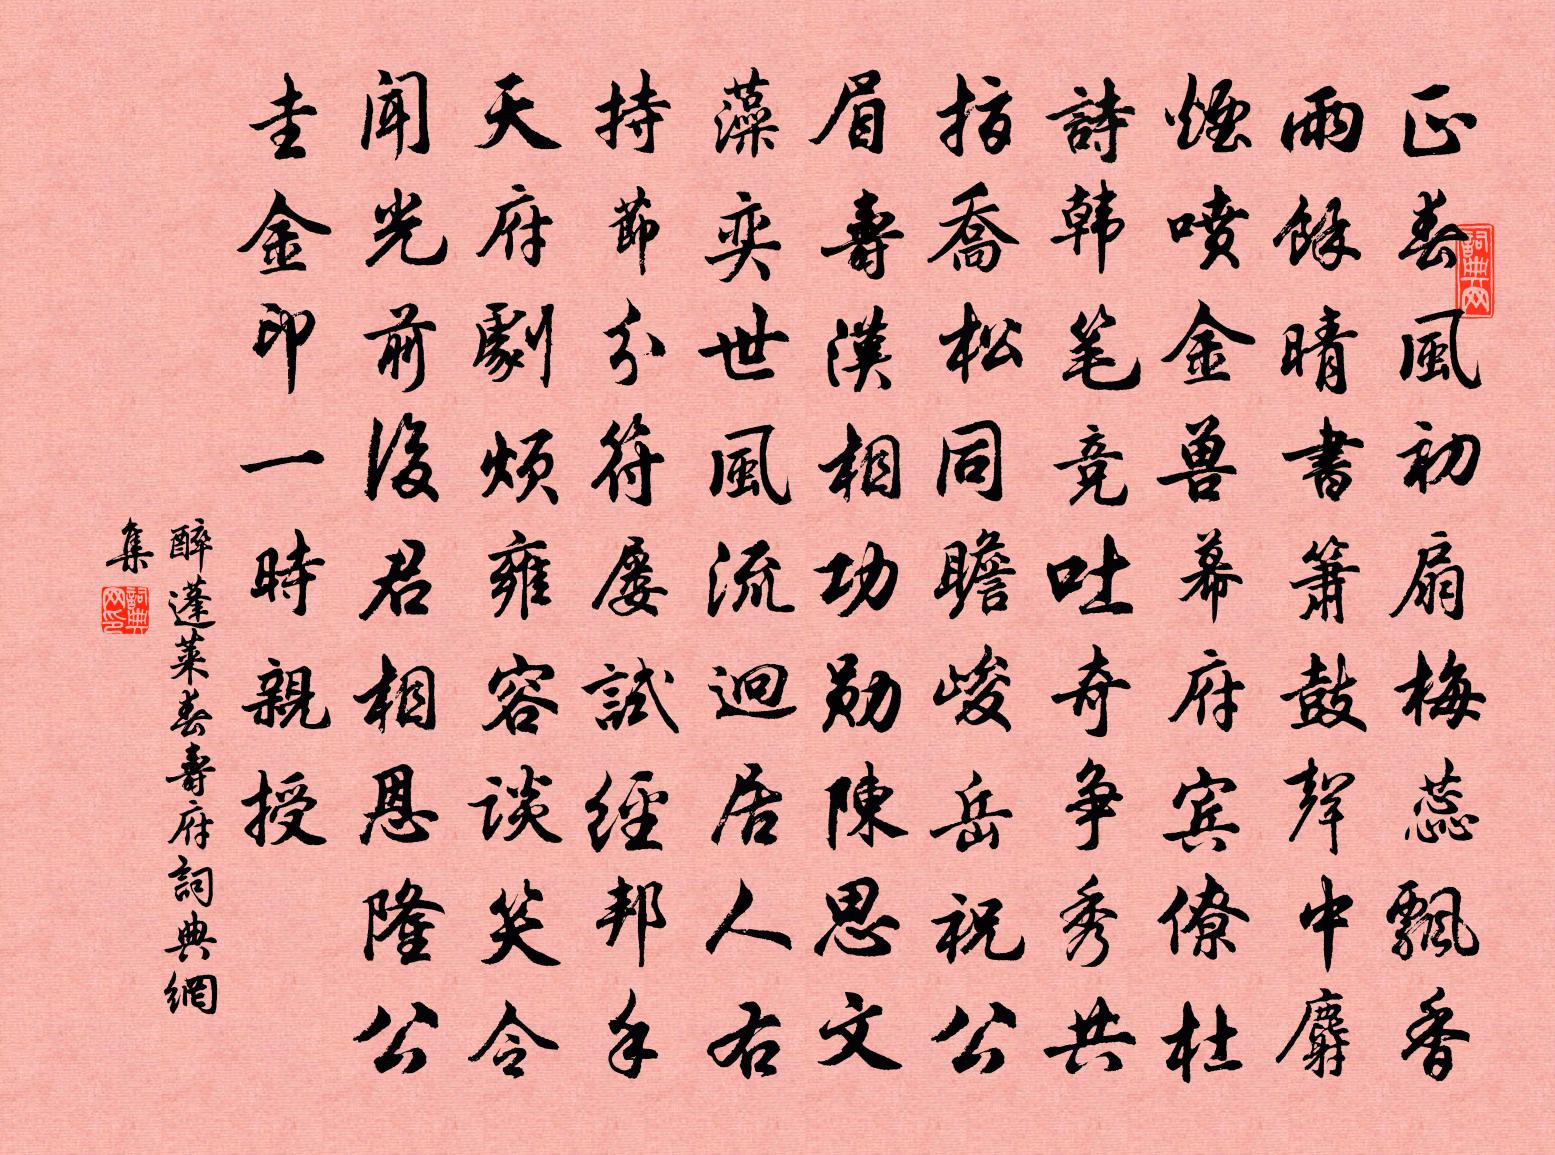 正春風初扇梅蕊飄香
雨餘晴書簫鼓聲中麝
煙噴金兽幕府宾僚杜
詩韩笔竞吐奇争秀共
指喬松同瞻峻岳祝公
眉壽漢相功勋陳思文
藻奕世風流迴居人右
持節分符屡試經邦手
天府劇烦雍容谈笑令
聞光前後君相恩隆公
圭金印一時親授
醉蓬莱春壽府詞典網
集
詞典网
詞典网印